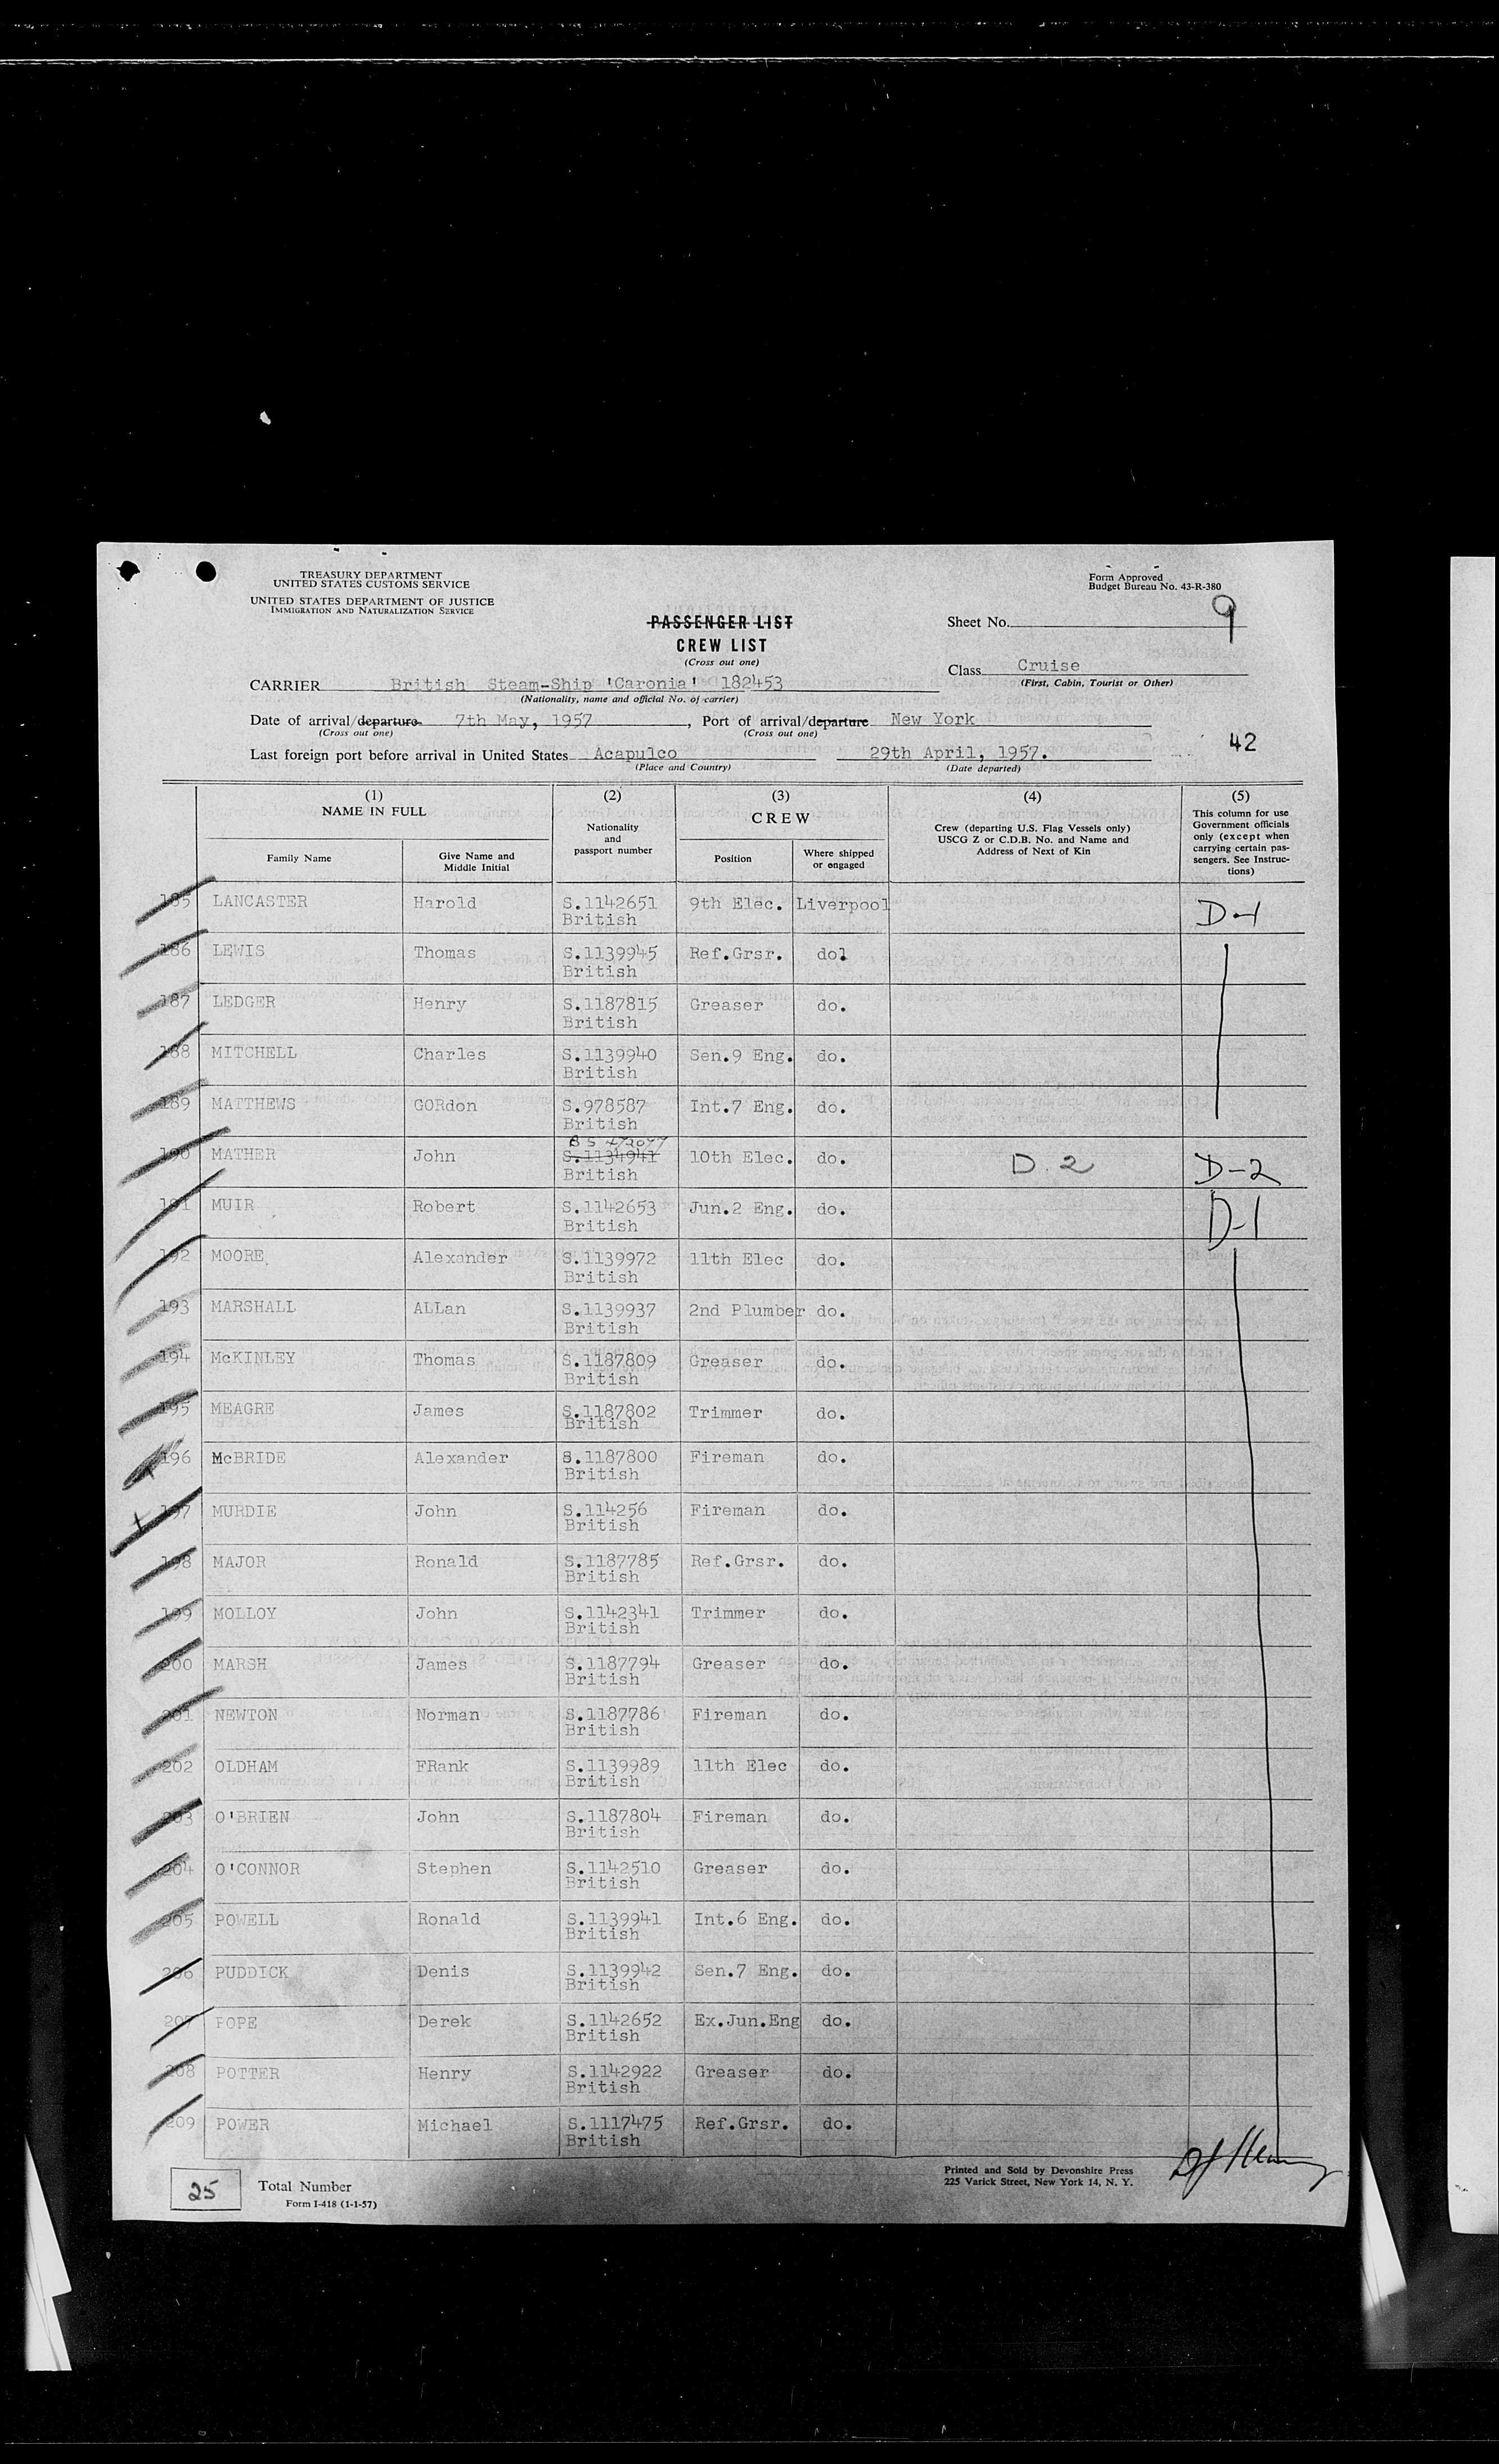 TREASURY DEPARTMENT
UNITED STATES CUSTOMS SERVICE
UNITED STATES DEPARTMENT OF JUSTICE
IMMIGRATION AND NATURALIZATION SERVICE
Form Approved
Budget Bureau No. 43-R-380
PASSENGER LIST
CREW LIST
(Cross out one)
Sheet No. 9
Class Cruise
(First, Cabin, Tourist or Other)
CARRIER British Steam-Ship 'Caronia' 182453
(Nationality, name and official No. of carrier)
Date of arrival/departure 7th May, 1957, Port of arrival/departure New York
(Cross out one) (Cross out one)
42
Last foreign port before arrival in United States Acapulco 29th April, 1957.
(Place and Country) (Date departed)
(1) NAME IN FULL
Family Name
Give Name and Middle Initial
(2) Nationality and passport number
(3) CREW
Position
Where shipped or engaged
(4) Crew (departing U.S. Flag Vessels only) USCG Z or C.D.B. No. and Name and Address of Next of Kin
(5) This column for use Government officials only (except when carrying certain passengers. See Instructions)
185 LANCASTER Harold S.1142651 9th Elec. Liverpool D-1
British
186 LEWIS Thomas S.1139945 Ref.Grsr. dol
British
187 LEDGER Henry S.1187815 Greaser do.
British
188 MITCHELL Charles S.1139940 Sen.9 Eng. do.
British
189 MATTHEWS GORdon S.978587 Int.7 Eng. do.
British
190 MATHER John S.1134941 10th Elec. do. D.2 D-2
British
191 MUIR Robert S.1142653 Jun.2 Eng. do. D-1
British
192 MOORE Alexander S.1139972 11th Elec do.
British
193 MARSHALL ALLan S.1139937 2nd Plumber do.
British
194 McKINLEY Thomas S.1187809 Greaser do.
British
195 MEAGRE James S.1187802 Trimmer do.
British
196 McBRIDE Alexander S.1187800 Fireman do.
British
197 MURDIE John S.114256 Fireman do.
British
198 MAJOR Ronald S.1187785 Ref.Grsr. do.
British
199 MOLLOY John S.1142341 Trimmer do.
British
200 MARSH James S.1187794 Greaser do.
British
201 NEWTON Norman S.1187786 Fireman do.
British
202 OLDHAM FRank S.1139989 11th Elec do.
British
203 O'BRIEN John S.1187804 Fireman do.
British
204 O'CONNOR Stephen S.1142510 Greaser do.
British
205 POWELL Ronald S.1139941 Int.6 Eng. do.
British
206 PUDDICK Denis S.1139942 Sen.7 Eng. do.
British
207 POPE Derek S.1142652 Ex.Jun.Eng do.
British
208 POTTER Henry S.1142922 Greaser do.
British
209 POWER Michael S.1117475 Ref.Grsr. do.
British
25 Total Number
Form I-418 (1-1-57)
Printed and Sold by Devonshire Press
225 Varick Street, New York 14, N. Y.